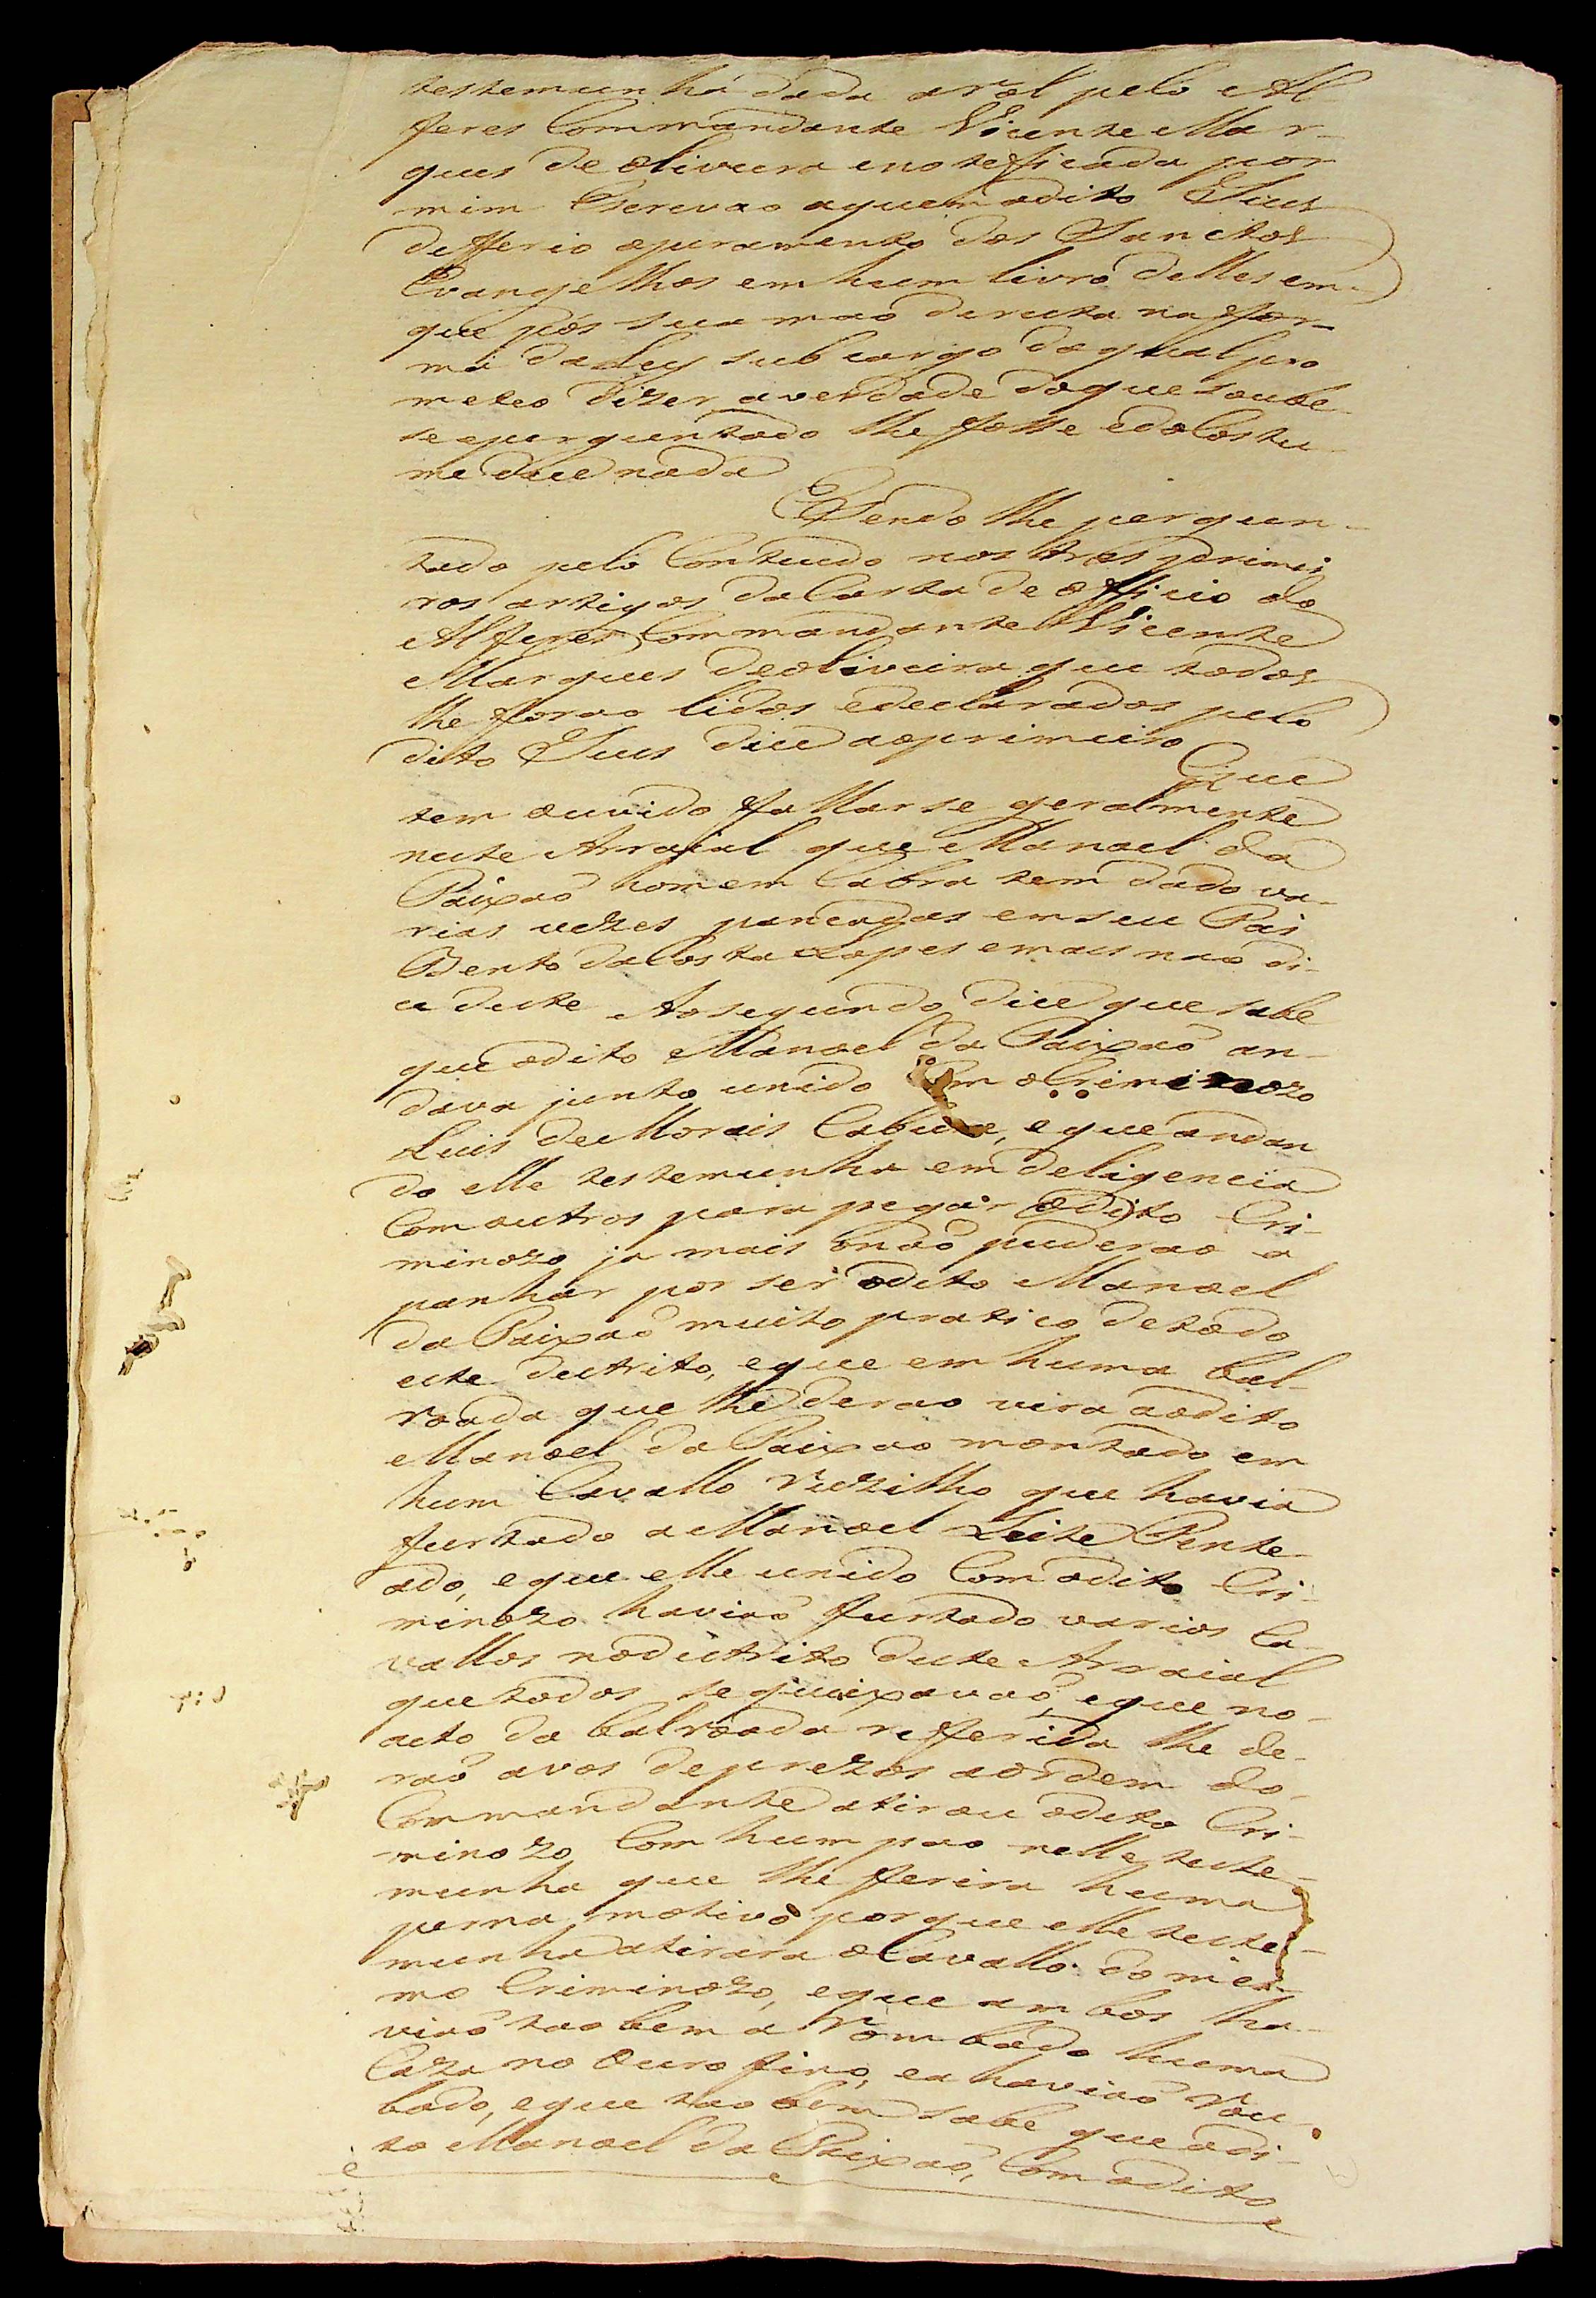 testemunha dada a rol pelo Al-
feres Commandante Vicente Mar-
ques de oliveira enoteficada por
mim Escrivao aquem adito Juis
defferio ojuramento dos Sanctos
Evangelhos em hum livro delles em-
que pós sua mao direita na for-
ma daley sub cargo do qual pro
meteo dizer averdade doque soube-
se epurguntado lhe fosse edo Costu-
me dice nada
ESendo lhe pergun-
tado pelo Contiudo nos tres primei
ros artigos da Carta de officio do
Alferes Commandante Vicente
Marques deoliveira que todos
lhe forao lidos edeclarados pelo
dito Juis dice aoprimeiro
Que
tem ouvido fallarse geralmente
neste Arraial que Manoel da
Paixaõ homem Cabra tem dado va-
rias vezes pancadas em seu Pai
Bento da Costa Lopes emais naõ di-
ce deste Aosegundo dice que sabe
que odito Manoel da Paixaõ an-
dava junto unido Com oCriminozo
Luis deMorais Cabral, eque andan
do elle testemunha em deligencia
Com outros para pegar odito Cri-
minozo ja mais onaõ puderao a
panhar por ser odito Manoel
da Paixaõ muito pratico detodo
este destrito, eque em huma bal-
roada que lhe derao vira aodito
Manoel da Paixao montado em
hum Cavallo ruzilho que havia
furtado a Manoel Leite Pente-
ado, eque elle unido Com odito Cri-
minozo haviaõ furtado varios Ca-
vallos nodestrito deste Arraial
que todos se queixavaõ, eque no-
acto da balroada refferida lhe de-
raõ avos deprezos aordem do-
Commandante atirou odito Cri-
minozo Com hum pao nelle teste-
munha que lhe ferira huma
perna motivo porque elle teste-
munha atirara oCavallo do mes-
mo Criminozo, eque ambos ha-
viaõ tao bem a rombado huma
Caza no Ouro fino, ea haviaõ rou-
bado, eque tao bem sabe que odi-
to Manoel da Paixaõ, Com odito